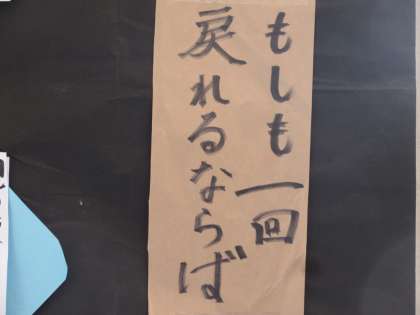 もしも一回
戻れるならば